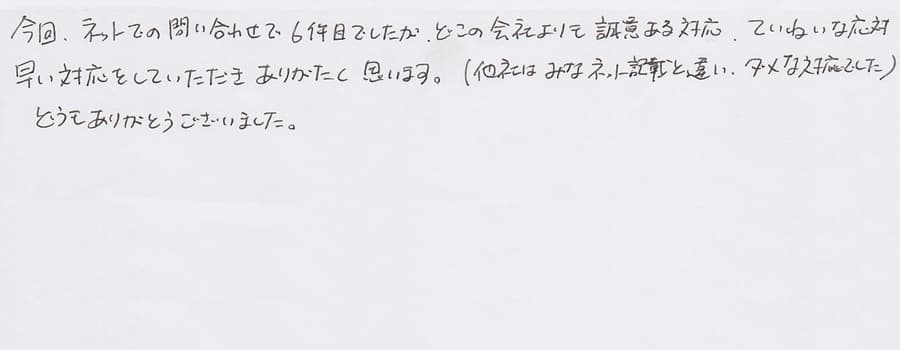 今回、ネットでの問い合わせで6件目でしたが、どこの会社よりも誠意ある対応、ていねいな応対
早い対応をしていただきありがたく思います。(他社はみなネット記載と違い、ダメな対応でした)
どうもありがとうございました。